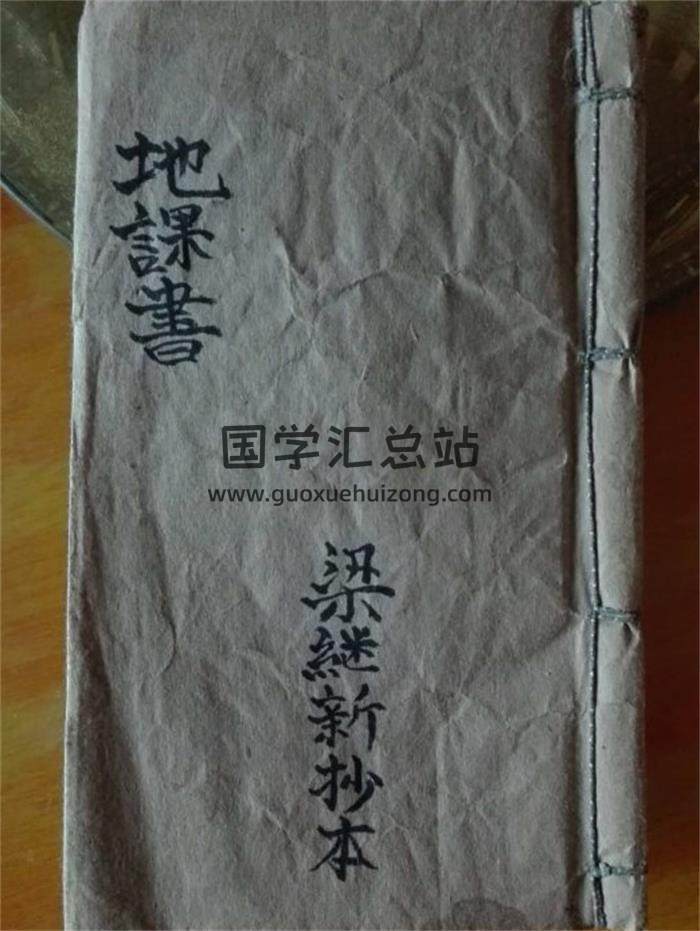 地課書
国学汇总站
www.guoxuehuizong.com
梁継新抄本